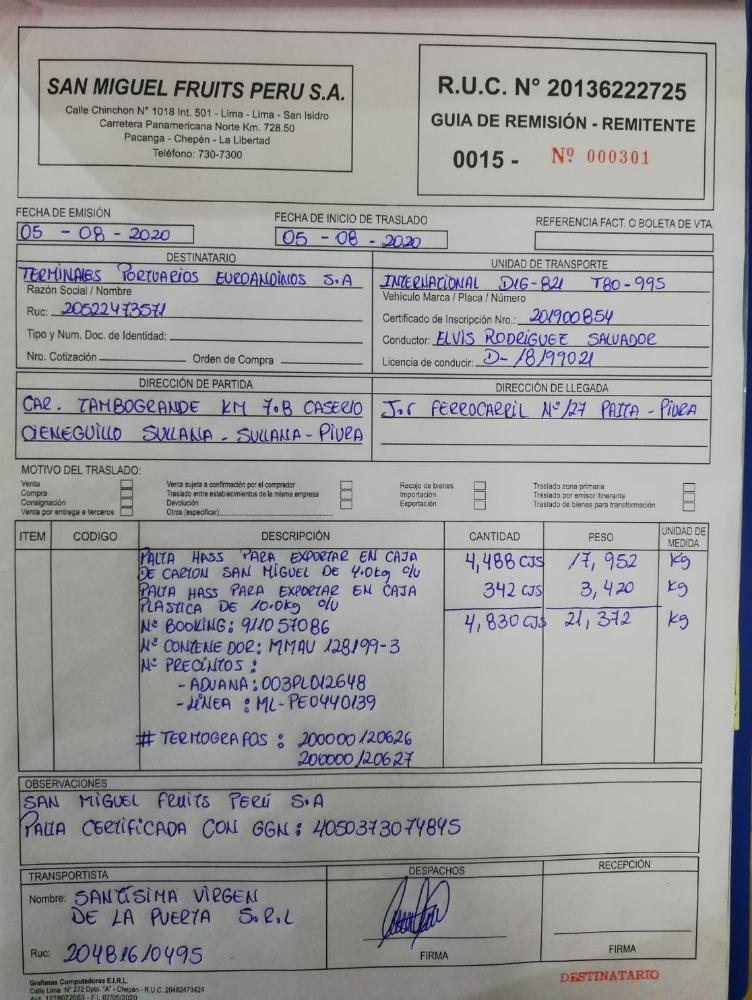 SAN MIGUEL FRUITS PERU S.A.
Calle Chinchon N° 1018 Int. 501 - Lima - Lima - San Isidro
Carretera Panamericana Norte Km. 728.50
Pacanga - Chepén - La Libertad
Teléfono: 730-7300
R.U.C. N° 20136222725
GUIA DE REMISIÓN - REMITENTE
0015 - Nº 000301
FECHA DE EMISIÓN
05 - 08 - 2020
FECHA DE INICIO DE TRASLADO
05 - 08 - 2020
REFERENCIA FACT. O BOLETA DE VTA.
DESTINATARIO
TERMINALES PORTUARIOS EUROANDINOS S.A
Razón Social / Nombre
Ruc: 20522473571
Tipo y Num. Doc. de Identidad:
Nro. Cotización Orden de Compra
UNIDAD DE TRANSPORTE
INTERNATIONAL D1G-821 T80-995
Vehículo Marca / Placa / Número
Certificado de Inscripción Nro.: 201900854
Conductor: ELVIS RODRIGUEZ SALVADOR
Licencia de conducir: D-18199021
DIRECCIÓN DE PARTIDA
CAR. TAMBOGRANDE KM 7.8 CASERIO
CIENEGUILLO SULLANA - SULLANA - PIURA
DIRECCIÓN DE LLEGADA
J.r FERROCARRIL Nº127 PAITA - PIURA
MOTIVO DEL TRASLADO:
Venta
Compra
Consignación
Venta por entrega a terceros
Venta sujeta a confirmación por el comprador
Traslado entre establecimientos de la misma empresa
Devolución
Otros (especificar)
Recojo de bienes
Importación
Exportación
Traslado zona primaria
Traslado por emisor itinerante
Traslado de bienes para transformación
ITEM CODIGO DESCRIPCIÓN CANTIDAD PESO UNIDAD DE MEDIDA
PALTA HASS PARA EXPORTAR EN CAJA 4,488 CJS 17,952 Kg
DE CARTON SAN MIGUEL DE 4.0kg c/u
PALTA HASS PARA EXPORTAR EN CAJA 342 CJS 3,420 Kg
PLASTICA DE 10.0kg c/u
Nº BOOKING: 911057086 4,830 CJS 21,372 Kg
Nº CONTENEDOR: MMAU 128199-3
Nº PRECINTOS :
- ADUANA: 003PL012648
- LÍNEA : ML-PE0440139
# TERMOGRAFOS : 200000120626
200000120627
OBSERVACIONES
SAN MIGUEL FRUITS PERÚ S.A
PALTA CERTIFICADA CON GGN: 4050373074845
TRANSPORTISTA
Nombre: SANTÍSIMA VIRGEN
DE LA PUERTA S.R.L
Ruc: 20481610495
DESPACHOS
FIRMA
RECEPCIÓN
FIRMA
DESTINATARIO
Grafimas Computadoras E.I.R.L.
Calle Lima N° 272 Dpto. "A" - Chepén - R.U.C. 20482473424
Aut. 1279072053 - F.I. 07/05/2020